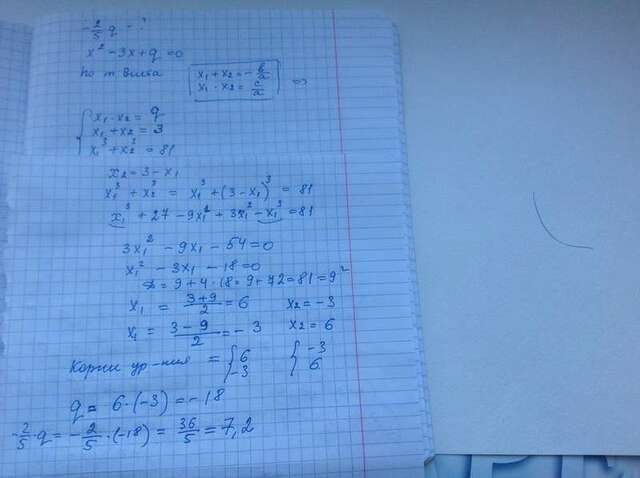 -2/5 q - ?
x² - 3x + q = 0
по т Виета x₁ + x₂ = -b/a
x₁ · x₂ = c/a ⇒
{ x₁ · x₂ = q
x₁ + x₂ = 3
x₁³ + x₂³ = 81
x₂ = 3 - x₁
x₁³ + x₂³ = x₁³ + (3 - x₁)³ = 81
x₁³ + 27 - 9x₁² + 3x₁² - x₁³ = 81
3x₁² - 9x₁ - 54 = 0
x₁² - 3x₁ - 18 = 0
D = 9 + 4 · 18 = 9 + 72 = 81 = 9²
x₁ = (3+9)/2 = 6 x₂ = -3
x₁ = (3-9)/2 = -3 x₂ = 6
Корни ур-ния = { 6 -3 { -3 6
q = 6 · (-3) = -18
-2/5 · q = -2/5 · (-18) = 36/5 = 7,2